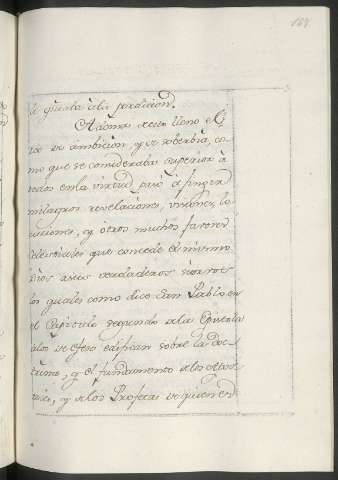 le guiaba à la perdicion.
Ademas de esto lleno el
de ambicion, y de soberbia, co
mo que se consideraba superior à
todos en la virtud, pasó à fingir
milagros, revelaciones, visiones, lo
cuciones, y otros muchos favores
Celestiales que concede el mismo
Dios à sus verdaderos siervos
los quales como dice San Pablo en
el Capitulo segundo de la Epistola
à los de Efeso edifican sobre la doc
trina, y el fundamento de los Apos
y de los Profetas de quien es